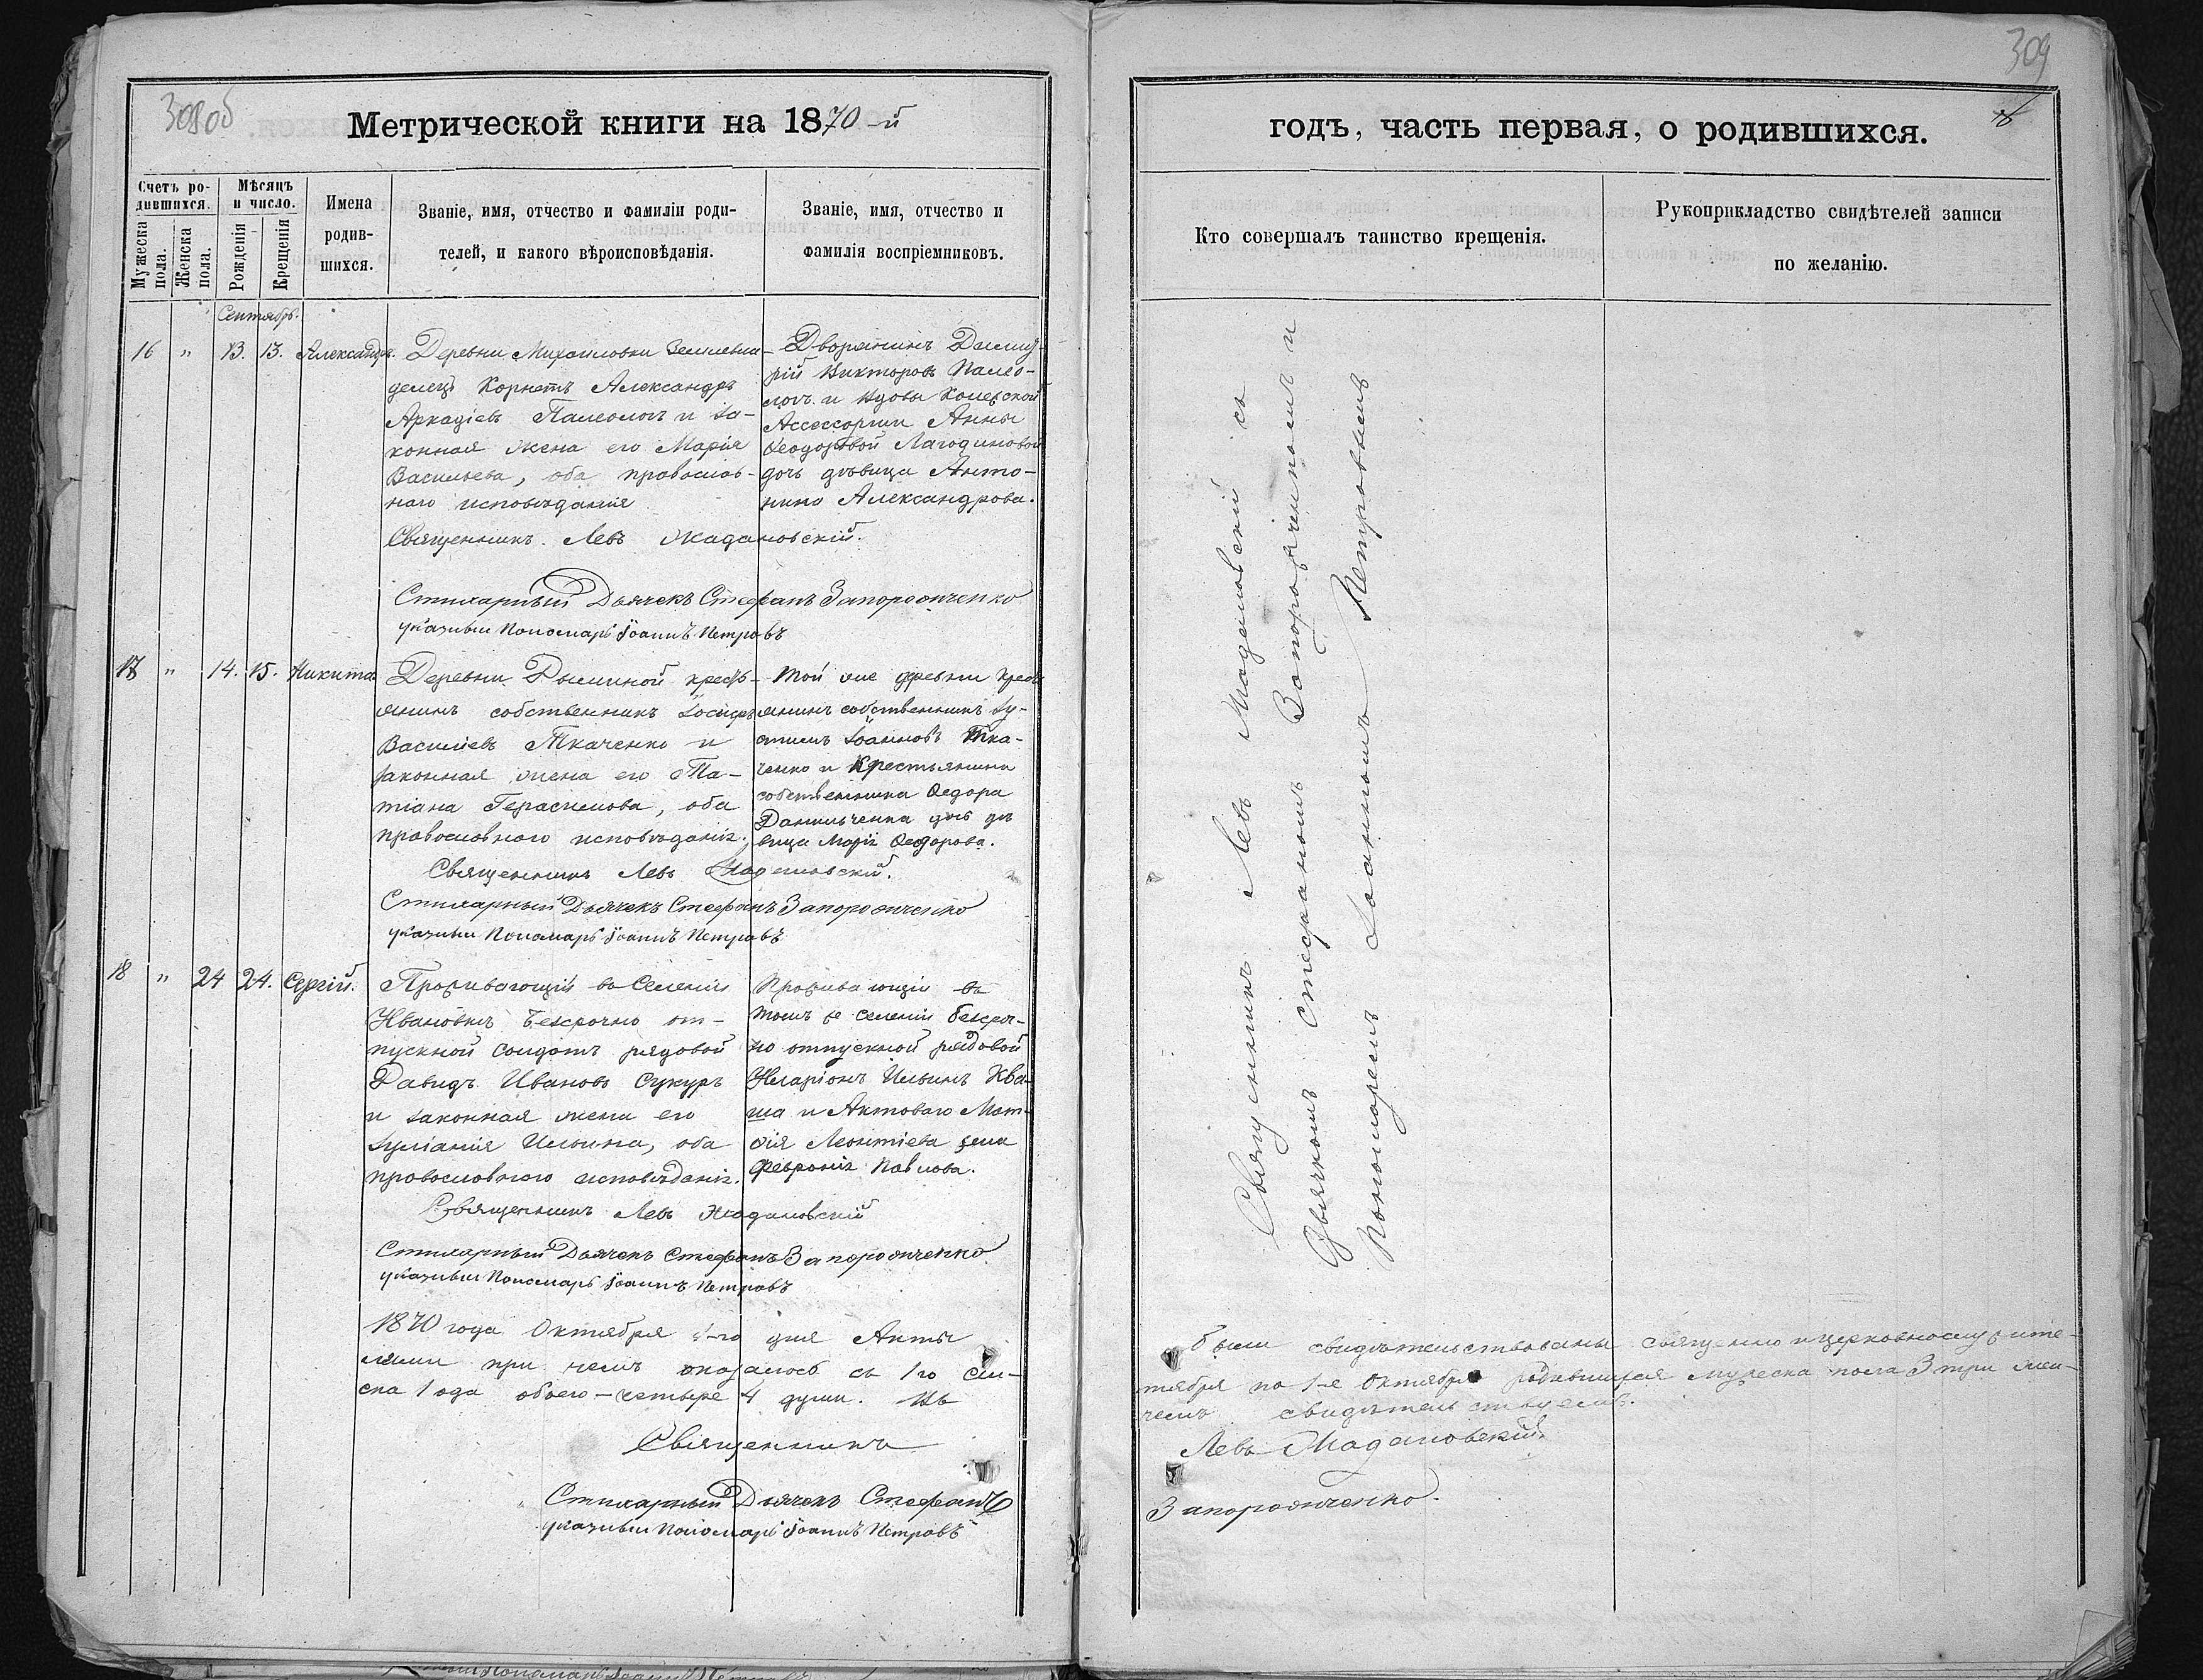 308об
Метрической книги на 1870-й
Счетъ ро-
дившихся.
Мѣсяцъ
и число.
Мужеска
пола.
Женска
пола.
Рожденія
Крещенія
Имена
родив-
шихся.
Званіе, имя, отчество и фамиліи роди-
телей, и какого вѣроисповѣданія.
Званіе, имя, отчество и
фамилія воспріемниковъ.
Сентябрь.
16 " 13. 13. Александръ.
Деревни Михайловки
Корнетъ Александръ
Аркадіевъ Палеологъ и за-
конная жена его Марія
Васильева, оба православ-
наго исповѣданія
Дворянинъ Дмит-
рій Викторовъ Палео-
логъ и вдовы Колежской
Ассессорши Анны
Феодоровой Лагодиновой
дочь дѣвица Анто-
нина Александрова.
Священникъ Левъ Жадановскій.
Стихарный Дьячекъ Стефанъ Запорожченко
указный Пономарь Іоаннъ Петровъ
17 " 14. 15. Никита
Деревни крестъ-
янинъ собственникъ Іосифъ
Василіевъ Ткаченко и
законная жена его Та-
тіана Герасимова, оба
православнаго исповѣданія.
Той же деревни крестъ-
янинъ собственникъ Іу-
Іоанновъ Тка-
ченко и Крестьянина
собственника Федора
Данильченка дочь дѣ
вица Марія Феодорова.
Священникъ Левъ Жадановскій.
Стихарный Дьячекъ Стефанъ Запорожченко
указный Пономарь Іоаннъ Петровъ
18 " 24 24. Сергій.
Проживающій въ Селеніи
Ивановкѣ безсрочно от-
пускной солдатъ рядовой
Давидъ Ивановъ Сукуръ
и законная жена его
Іуліанія Ильина, оба
православнаго исповѣданія.
Проживающій въ
томъ же селеніи безсроч-
но отпускной рядовой
Иларіонъ Ильинъ Ква-
ша и Актоваго Мат-
фія Леонтіева жена
Февронія Павлова.
Священникъ Левъ Жадановскій
Стихарный Дьячекъ Стефанъ Запорожченко
указный Пономарь Іоаннъ Петровъ
1870 года Октября дня Акты
лями при чемъ оказалось съ 1го Сен-
ска 1 одна обоего - четыре 4 души. Въ
Священникъ
Стихарный Дьячекъ Стефанъ
указный Пономарь Іоаннъ Петровъ
309
годъ, часть первая, о родившихся.
Кто совершалъ таинство крещенія.
Рукоприкладство свидѣтелей записи
по желанію.
Священникъ Левъ Жадановскій съ
Дьячкомъ Стефаномъ Запорожченкомъ и
Пономаремъ Іоанномъ Петровымъ
были свидѣтельствованы священно и церковнослужите-
тября по 1-е Октября родившихся мужеска пола 3 три жен-
чемъ свидѣтельствуемъ.
Левъ Жадановскій
Запорожченко.